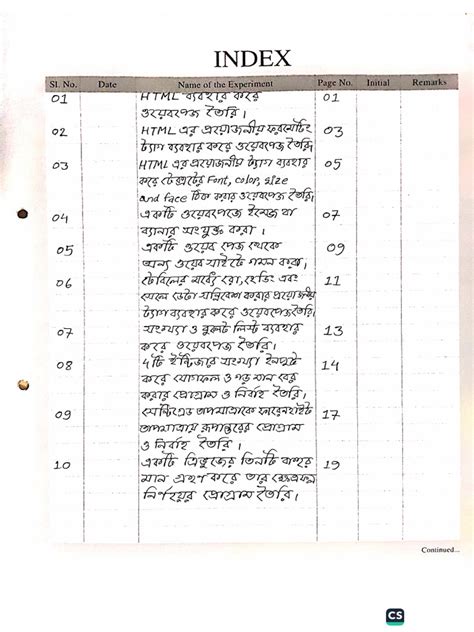 INDEX
Sl. No. Date Name of the Experiment Page No. Initial Remarks
01 HTML ব্যবহার করে 01
ওয়েবপেজ তৈরি।
02 HTML এর প্রয়োজনীয় ফরমেটিং 03
ট্যাগ ব্যবহার করে ওয়েবপেজ তৈরি
03 HTML এর প্রয়োজনীয় ট্যাগ ব্যবহার 05
করে টেক্সটের Font, color, size
and face ঠিক করার ওয়েবপেজ তৈরি।
04 একটি ওয়েবপেজে ইমেজ বা 07
ব্যানার সংযুক্ত করা।
05 একটি ওয়েব পেজ থেকে 09
অন্য ওয়েব সাইটে গমন করা।
06 টেবিলের বর্ডার, রো, হেডিং এবং 11
সেলে ডেটা সন্নিবেশ করার প্রয়োজনীয়
ট্যাগ ব্যবহার করে ওয়েবপেজ তৈরি।
07 সংখ্যা ও বুলেট লিস্ট ব্যবহার 13
করে ওয়েবপেজ তৈরি।
08 টি সংখ্যা ইনপুট 14
করে যোগফল ও গড় মান বের
করার প্রোগ্রাম ও নির্বাহ তৈরি।
09 সেন্টিগ্রেড তাপমাত্রাকে ফারেনহাইট 17
তাপমাত্রায় রূপান্তরের প্রোগ্রাম
ও নির্বাহ তৈরি।
10 একটি ত্রিভুজের তিনটি বাহুর 19
মান গ্রহণ করে তার ক্ষেত্রফল
নির্ণয়ের প্রোগ্রাম তৈরি।
Continued...
CS